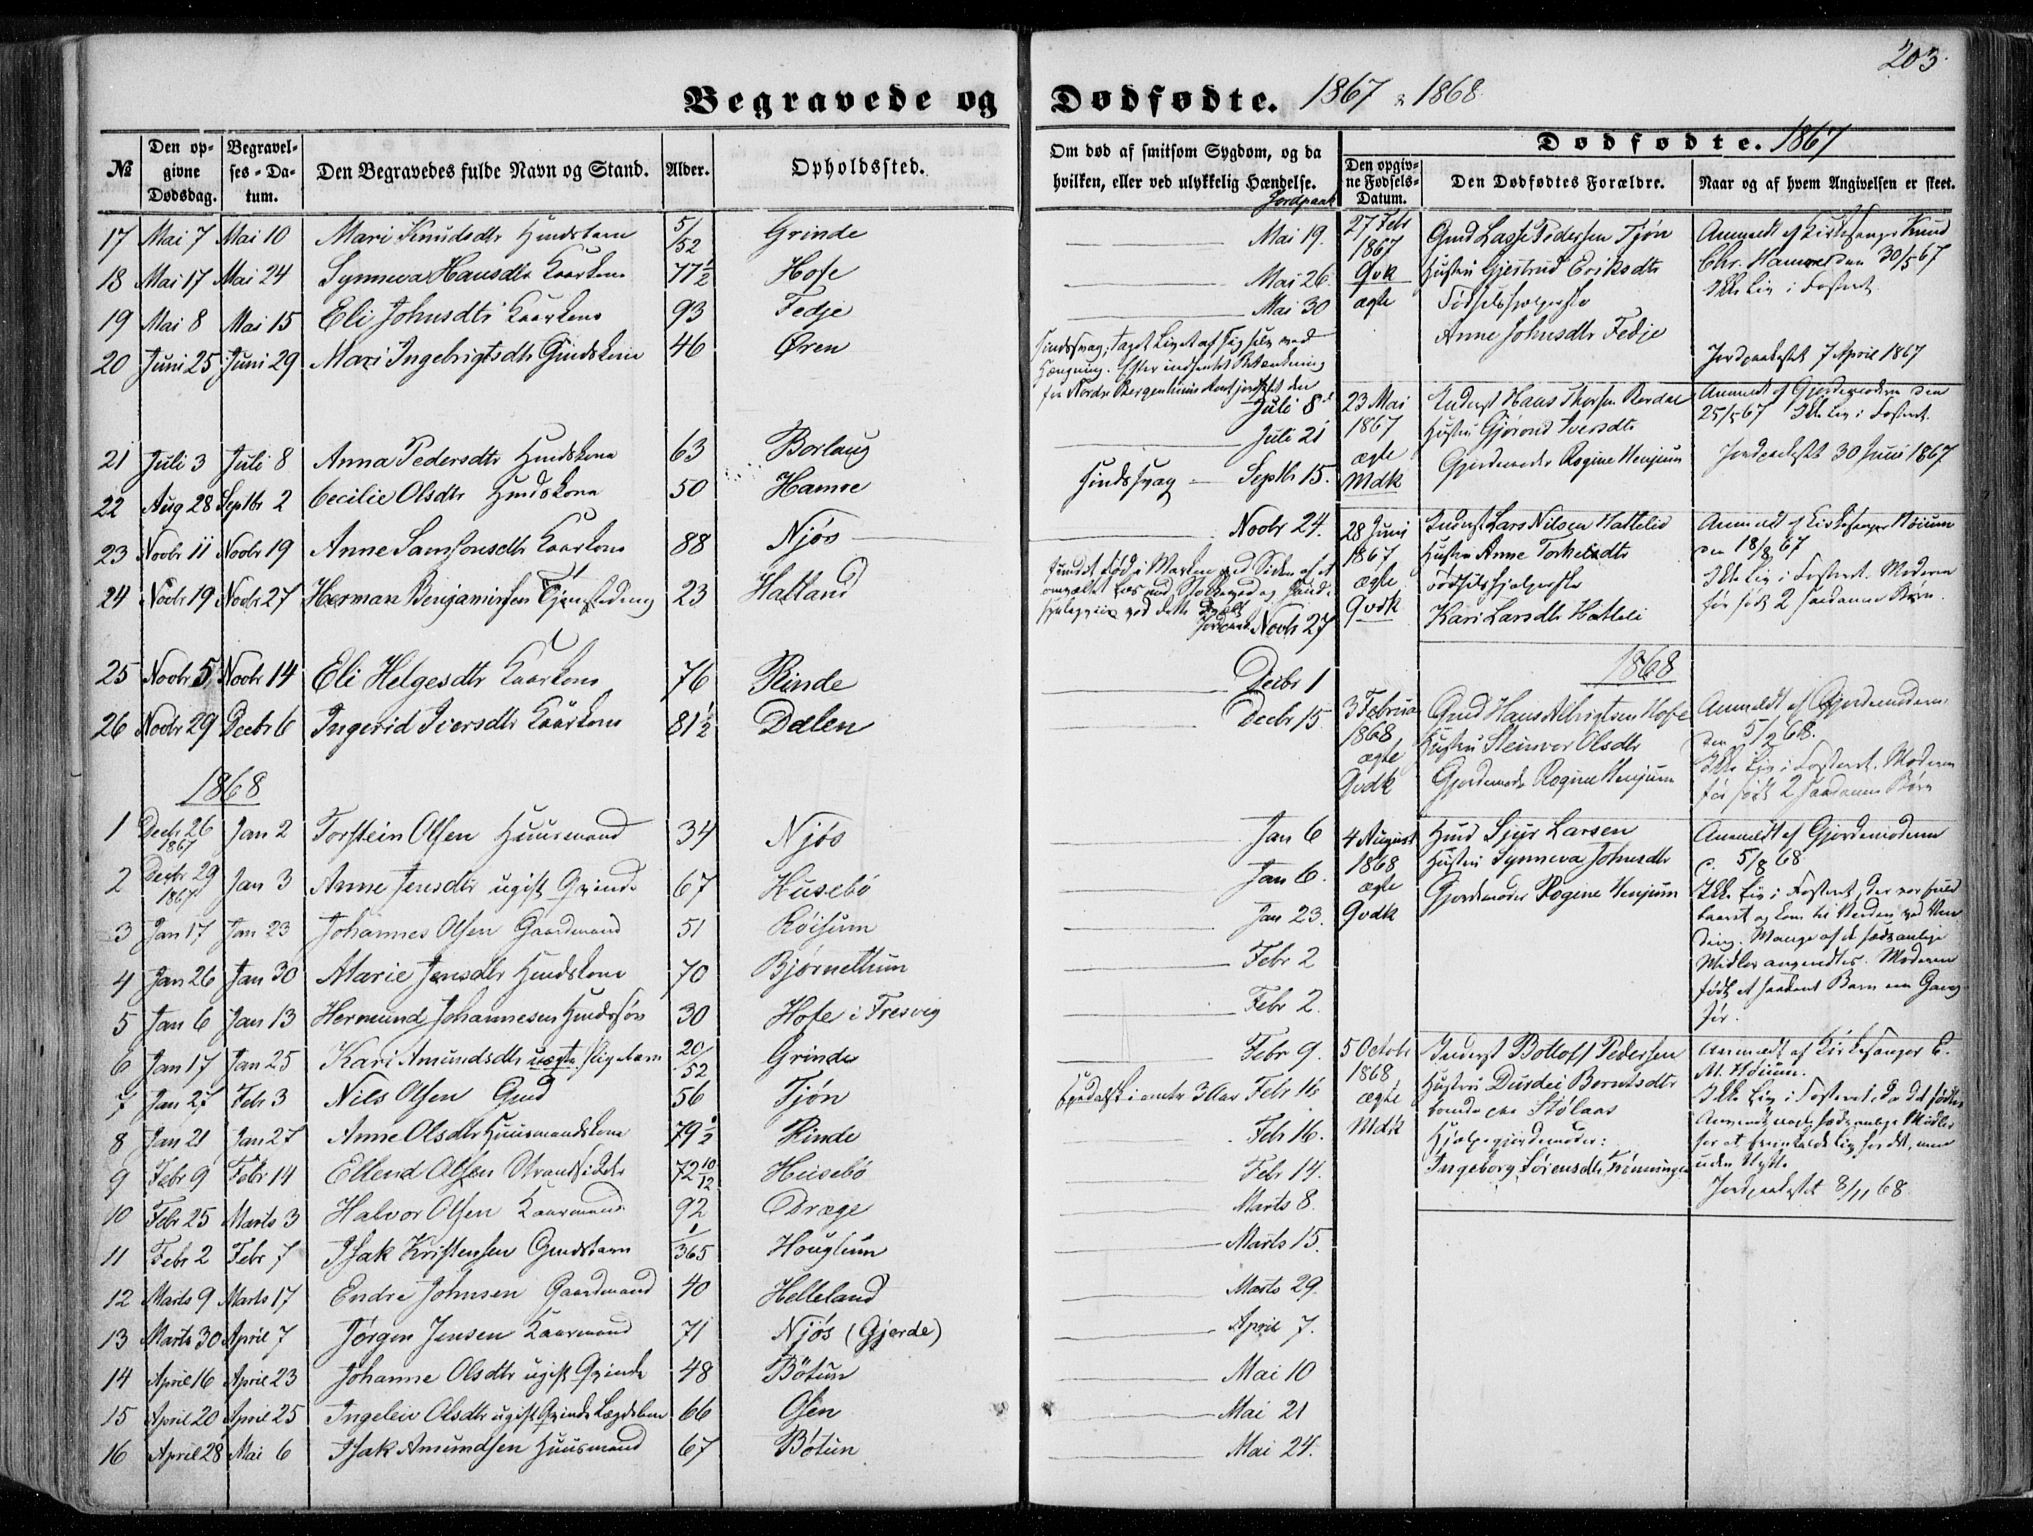 203.
Begravede og Dødfødte. 1867 & 1868
№ Den opgivne Dødsdag. Begravelses-Datum. Den Begravedes fulde Navn og Stand. Alder. Opholdssted.
17 Mai 7 Mai 10 Mari Knudsdtr 5/52 Grinde
18 Mai 17 Mai 24 Synneva Hansdtr Kaarkone 77½ Hofe
19 Mai 8 Mai 15 Eli Johnsdtr Kaarkone 93 Fedje
20 Juni 25 Juni 29 Mari Ingebrigtsdtr 46 Øren
21 Juli 3 Juli 8 Anna Pedersdtr 63 Borlaug
22 Aug 28 Septbr 2 Cecilie Olsdtr 50 Hamre
23 Novbr 11 Novbr 19 Anne Samsonsdtr Kaarkone 88 Njøs
24 Novbr 19 Novbr 27 Herman Benjaminsen 23 Hatland
25 Novbr 5 Novbr 14 Eli Helgesdtr Kaarkone 76 Rinde
26 Novbr 29 Decbr 6 Ingerid Iversdtr Kaarkone 81½ Dalen
1868
1 Decbr 26 1867 Jan 2 Torstein Olsen Huusmand 34 Njøs
2 Decbr 29 1867 Jan 3 Anne Jensdtr ugift Qvinde 67 Husebö
3 Jan 17 Jan 23 Johannes Olsen Gaardmand 51 Röisum
4 Jan 26 Jan 30 Marie Jensdtr 70 Bjørnethun
5 Jan 6 Jan 13 Hermund Johannesen 30 Hofe i Fresvig
6 Jan 17 Jan 25 Kari Amundsdtr uægte 20/52 Grinde
7 Jan 27 Feb 3 Nils Olsen Gmd 56 Tjøn
8 Jan 21 Jan 27 Anne Olsdtr Huusmandskone 79½ Rinde
9 Febr 9 Febr 14 Ellend Olsen Strandsidder 72 10/12 Husebö
10 Febr 25 Marts 3 Halvor Olsen Kaarmand 92 Dræge
11 Febr 2 Febr 7 Isak Kristensen 1/365 Hougtun
12 Marts 9 Marts 17 Endre Johnsen Gaardmand 40 Helleland
13 Marts 30 April 7 Jørgen Jensen Kaarmand 71 Njøs (Gjerde)
14 April 16 April 23 Johanne Olsdtr ugift Qvinde 48 Bötun
15 April 20 April 25 Ingeleiv Olsdtr ugift Qvinde Lægdslem 66 Osen
16 April 28 Mai 6 Isak Amundsen Huusmand 67 Bötun
Om død af smitsom Sygdom, og da hvilken, eller ved ulykkelig Hændelse.
Jordpaak
Mai 19.
Mai 26
Mai 30
Sindssvag, taget Livet af sig selv ved
Hængning. Efter indhentet Betænkning
Juli 8
Juli 21
Sindssvag Septbr 15.
Novbr 24.
Novbr 27
Decbr 1
Decbr 15
Jan 6
Jan 6.
Jan 23.
Febr 2
Febr 2.
Febr 9.
Spedalsk i omtr 3 Aar Febr 16
Feb 16.
Febr 14.
Marts 8.
Marts 15.
Marts 29.
April 7.
Mai 10
Mai 21
Mai 24.
Dødfødte. 1867
Den opgivne Fødsels-Datum. Den Dødfødtes Forældre. Naar og af hvem Angivelsen er skeet.
27 Feb 1867 Qvk ægte
Gmd Lasse Pedersen Tjøn
Hustru Gjertrud Eriksdtr
Fødselshjælperske
Anne Johnsdtr Fedje
Anmeldt af Kirkesanger Knud
Chr. Hamre den 30/5 67
Ikke Liv i Fosteret
Jordpaakastet 7 April 1867
23 Mai 1867 ægte Mdk
Inderst Hans Thorsen Berdal
Hustru Gjørond Iversdtr
Gjordemoder Rogine Henjum
Anmeldt af Gjordemoderen den
25/5 67 Ikke Liv i Fosteret.
Jordpaakastet 30 Juni 1867
28 Juni 1867 ægte Qvdk
Inderst Lars Nilsen Hattelid
Hustru Anne Torkelsdtr
Fødselshjælperske
Kari Larsdtr Hatteli
Anmeldt af Kirkesanger Höium
den 18/8 67
Ikke Liv i Fosteret. Moderen
før født 2 saadanne Børn.
1868
3 Februar 1868 ægte Qvdk
Gmd Hans Albrigtsen Hofe
Hustru Steinvor Olsdtr
Gjordemoder Rogine Henjum
Anmeldt af Gjordemoderen
den 5/2 68.
Ikke Liv i Fosteret. Moderen
før født 2 saadanne Børn
4 August 1868 ægte Qvdk
Hmd Sjur Larsen
Hustru Synneva Johnsdtr
Gjordemoder Rogine Henjum
Anmeldt af Gjordemoderen
d. 5/8 68
Ikke Liv i Fosteret, der var fuld
baaret og kom til Verden ved Ven
ding. Mange af de sædvanlige
Midler anvendtes. Moderen
født et saadant Barn en Gang
før.
5 Octobr 1868 ægte Mdk
Inderst Botolf Pedersen
Hustru Durdei Berntsdtr
Stølaas
Hjælpegjordemoder:
Ingeborg Sørensdtr Trønningen
Anmeldt af Kirkesanger E.
M. Höium.
Ikke Liv i Fosteret, da det fødtes
uden Nytte
Jordpaakastet 8/11 68.